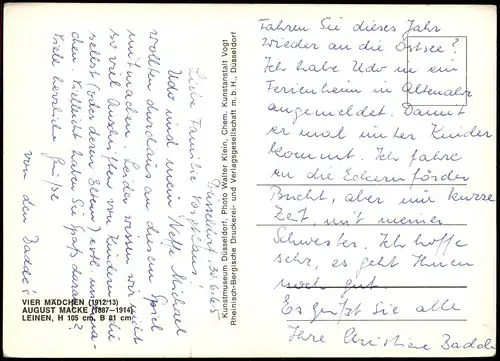 Düsseldorf, 30.6.65
Liebe Familie
Udo und mein Neffe Michael
wollten durchaus an diesem Spiel
mitmachen. Leider wissen wir nicht
so viel Anschriften von Kindern, die
selbst (oder deren Eltern) evtl. mitma-
chen. Vielleicht haben Sie Spaß daran?
Viele herzliche Grüße
von den Baddes!
Fahren Sie dieses Jahr
wieder an die Ostsee?
Ich habe Udo in ein
Ferienheim in Altenahr
angemeldet. Damit
er mal unter Kinder
kommt. Ich fahre
an die Eckernförder
Bucht, aber nur kurze
Zeit, mit meiner
Schwester. Ich hoffe
sehr, es geht Ihnen
noch gut.
Es grüßt Sie alle
Ihre Christiane Badde
VIER MÄDCHEN (1912/13)
AUGUST MACKE (1887-1914)
LEINEN, H 105 cm, B 81 cm
Kunstmuseum Düsseldorf, Photo Walter Klein, Chem. Kunstanstalt Vogt
Rheinisch-Bergische Druckerei- und Verlagsgesellschaft m.b.H., Düsseldorf